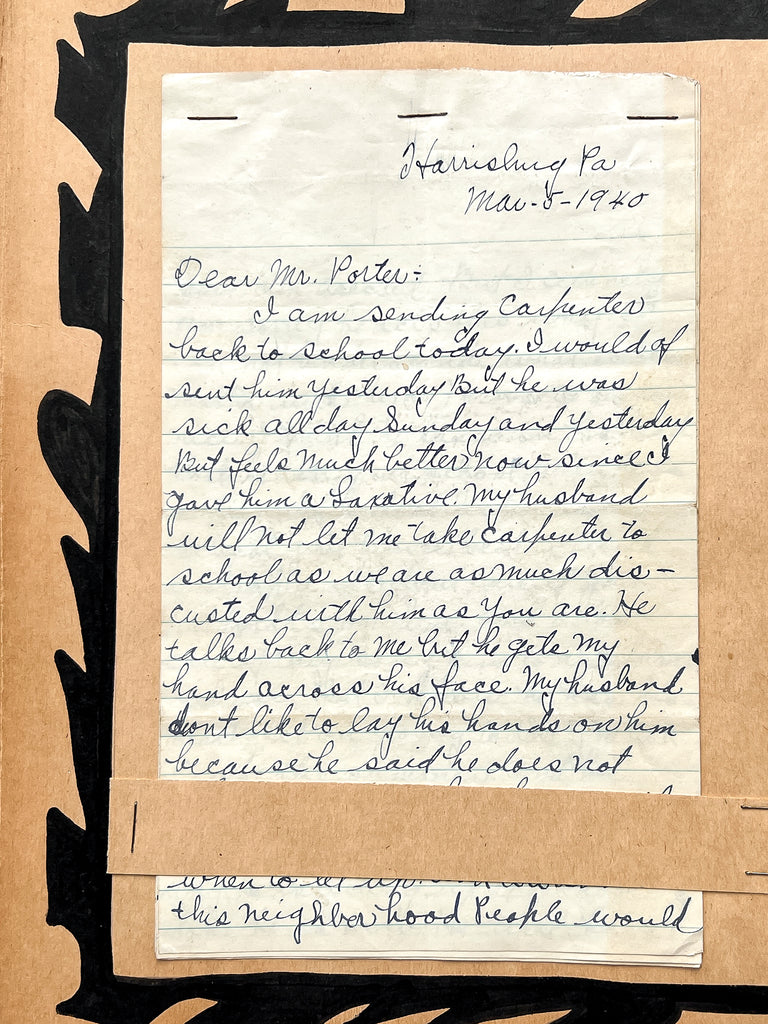 Harrisburg Pa
Mar-5-1940
Dear Mr. Porter:
I am sending Carpenter
back to school today. I would of
sent him yesterday But he was
sick all day Sunday and yesterday
But feels Much better now since I
gave him a Laxative. My husband
will not let me take Carpenter to
school as we are as much dis-
custed with him as you are. He
talks back to me but he gets my
hand across his face. My husband
dont like to lay his hands on him
because he said he does not
when to let up.
this neighborhood People would